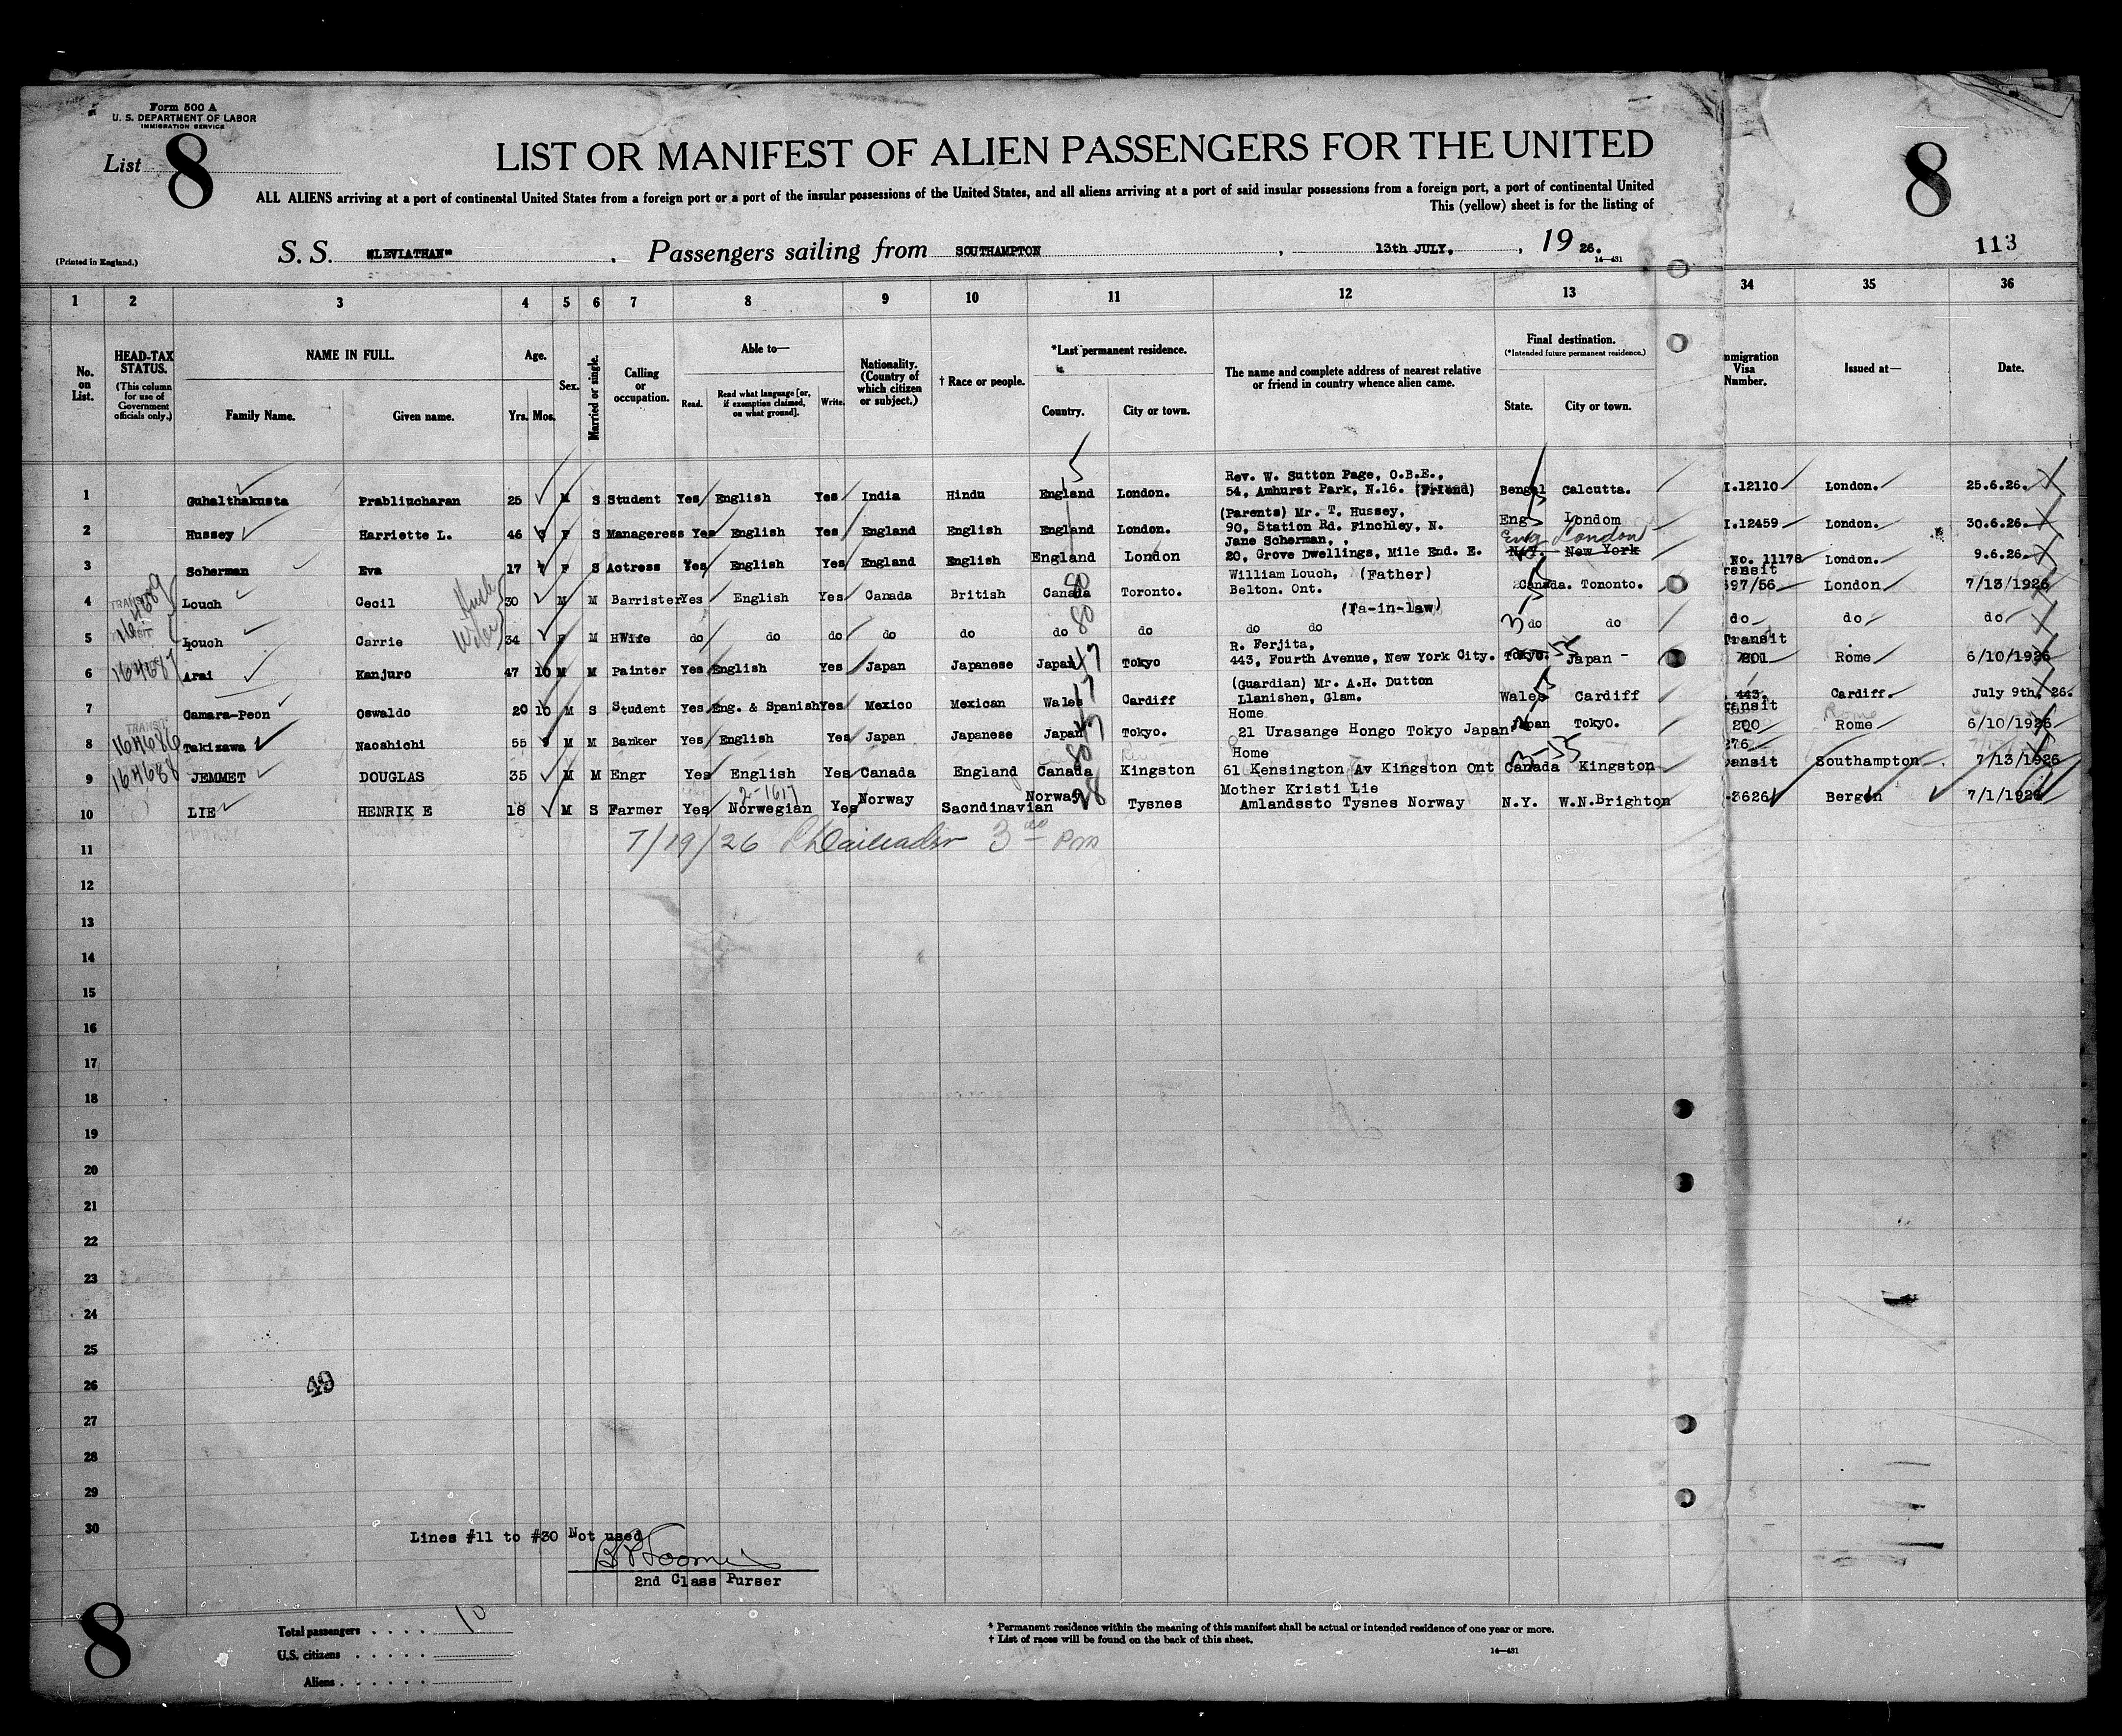 Form 500 A
U. S. DEPARTMENT OF LABOR
IMMIGRATION SERVICE
List 8
LIST OR MANIFEST OF ALIEN PASSENGERS FOR THE UNITED
8
ALL ALIENS arriving at a port of continental United States from a foreign port or a port of the insular possessions of the United States, and all aliens arriving at a port of said insular possessions from a foreign port, a port of continental United
This (yellow) sheet is for the listing of
113
(Printed in England.)
S. S. "LEVIATHAN" . Passengers sailing from SOUTHAMPTON , 13th JULY. , 19 26.
14—431
1 2 3 4 5 6 7 8 9 10 11 12 13 34 35 36
No. on List.
HEAD-TAX STATUS.
(This column for use of Government officials only.)
NAME IN FULL.
Family Name. Given name.
Age.
Yrs. Mos.
Sex.
Married or single.
Calling or occupation.
Able to—
Read. Read what language [or, if exemption claimed, on what ground]. Write.
Nationality. (Country of which citizen or subject.)
† Race or people.
*Last permanent residence.
Country. City or town.
The name and complete address of nearest relative or friend in country whence alien came.
Final destination.
(*Intended future permanent residence.)
State. City or town.
mmigration Visa Number.
Issued at—
Date.
Rev. W. Sutton Page, O.B.E.,
1 Guhalthakusta Prabliucharan 25 M S Student Yes English Yes India Hindu England London. 54, Amhurst Park, N.16. (Friend) Bengal Calcutta. I.12110 London. 25.6.26.
(Parents) Mr. T. Hussey,
2 Hussey Harriette L. 46 F S Manageress Yes English Yes England English England London. 90, Station Rd. Finchley, N. Eng London I.12459 London. 30.6.26.
Jane Scherman, , Eng London
3 Scherman Eva 17 F S Actress Yes English Yes England English England London 20, Grove Dwellings, Mile End. E. N.Y. New York No. 11178 London. 9.6.26.
William Louch, (Father) ransit
4 TRANSIT Louch Cecil 30 M M Barrister Yes English Yes Canada British Canada 80 Toronto. Belton. Ont. Canada. Tononto. 597/56 London 7/13/1926
(Fa-in-law)
5 Louch Carrie 34 F M HWife do do do do do do 80 do do do 3 do do do do do
R. Ferjita, Transit
6 164687 Arai Kanjuro 47 10 M M Painter Yes English Yes Japan Japanese Japan Tokyo 443, Fourth Avenue, New York City. Tokyo. Japan 201 Rome 6/10/1926
(Guardian) Mr. A.H. Dutton
7 Camara-Peon Oswaldo 20 10 M S Student Yes Eng. & Spanish Yes Mexico Mexican Wales Cardiff Llanishen, Glam. Wales Cardiff 443. Cardiff. July 9th, 26.
TRANSIT Home ransit
8 164686 Takizawa Naoshichi 55 M M Banker Yes English Yes Japan Japanese Japan Tokyo. 21 Urasange Hongo Tokyo Japan. Japan Tokyo. 200 Rome 6/10/1926
Home 276
9 164688 JEMMET DOUGLAS 35 M M Engr Yes English Yes Canada England Canada 80 Kingston 61 Kensington Av Kingston Ont Canada Kingston ansit Southampton 7/13/1926
2-1617 Mother Kristi Lie
10 LIE HENRIK E 18 M S Farmer Yes Norwegian Yes Norway Saondinavian Norway 28 Tysnes Amlandssto Tysnes Norway N.Y. W.N.Brighton -3626 Bergen 7/1/1926
11 7/19/26
12
13
14
15
16
17
18
19
20
21
22
23
24
25
26 49
27
28
29
30
Lines #11 to #30 Not used
2nd Class Purser
8
Total passengers . . . . 10
U.S. citizens . . . . .
Aliens . . . . . .
* Permanent residence within the meaning of this manifest shall be actual or intended residence of one year or more.
† List of races will be found on the back of this sheet.
14—431